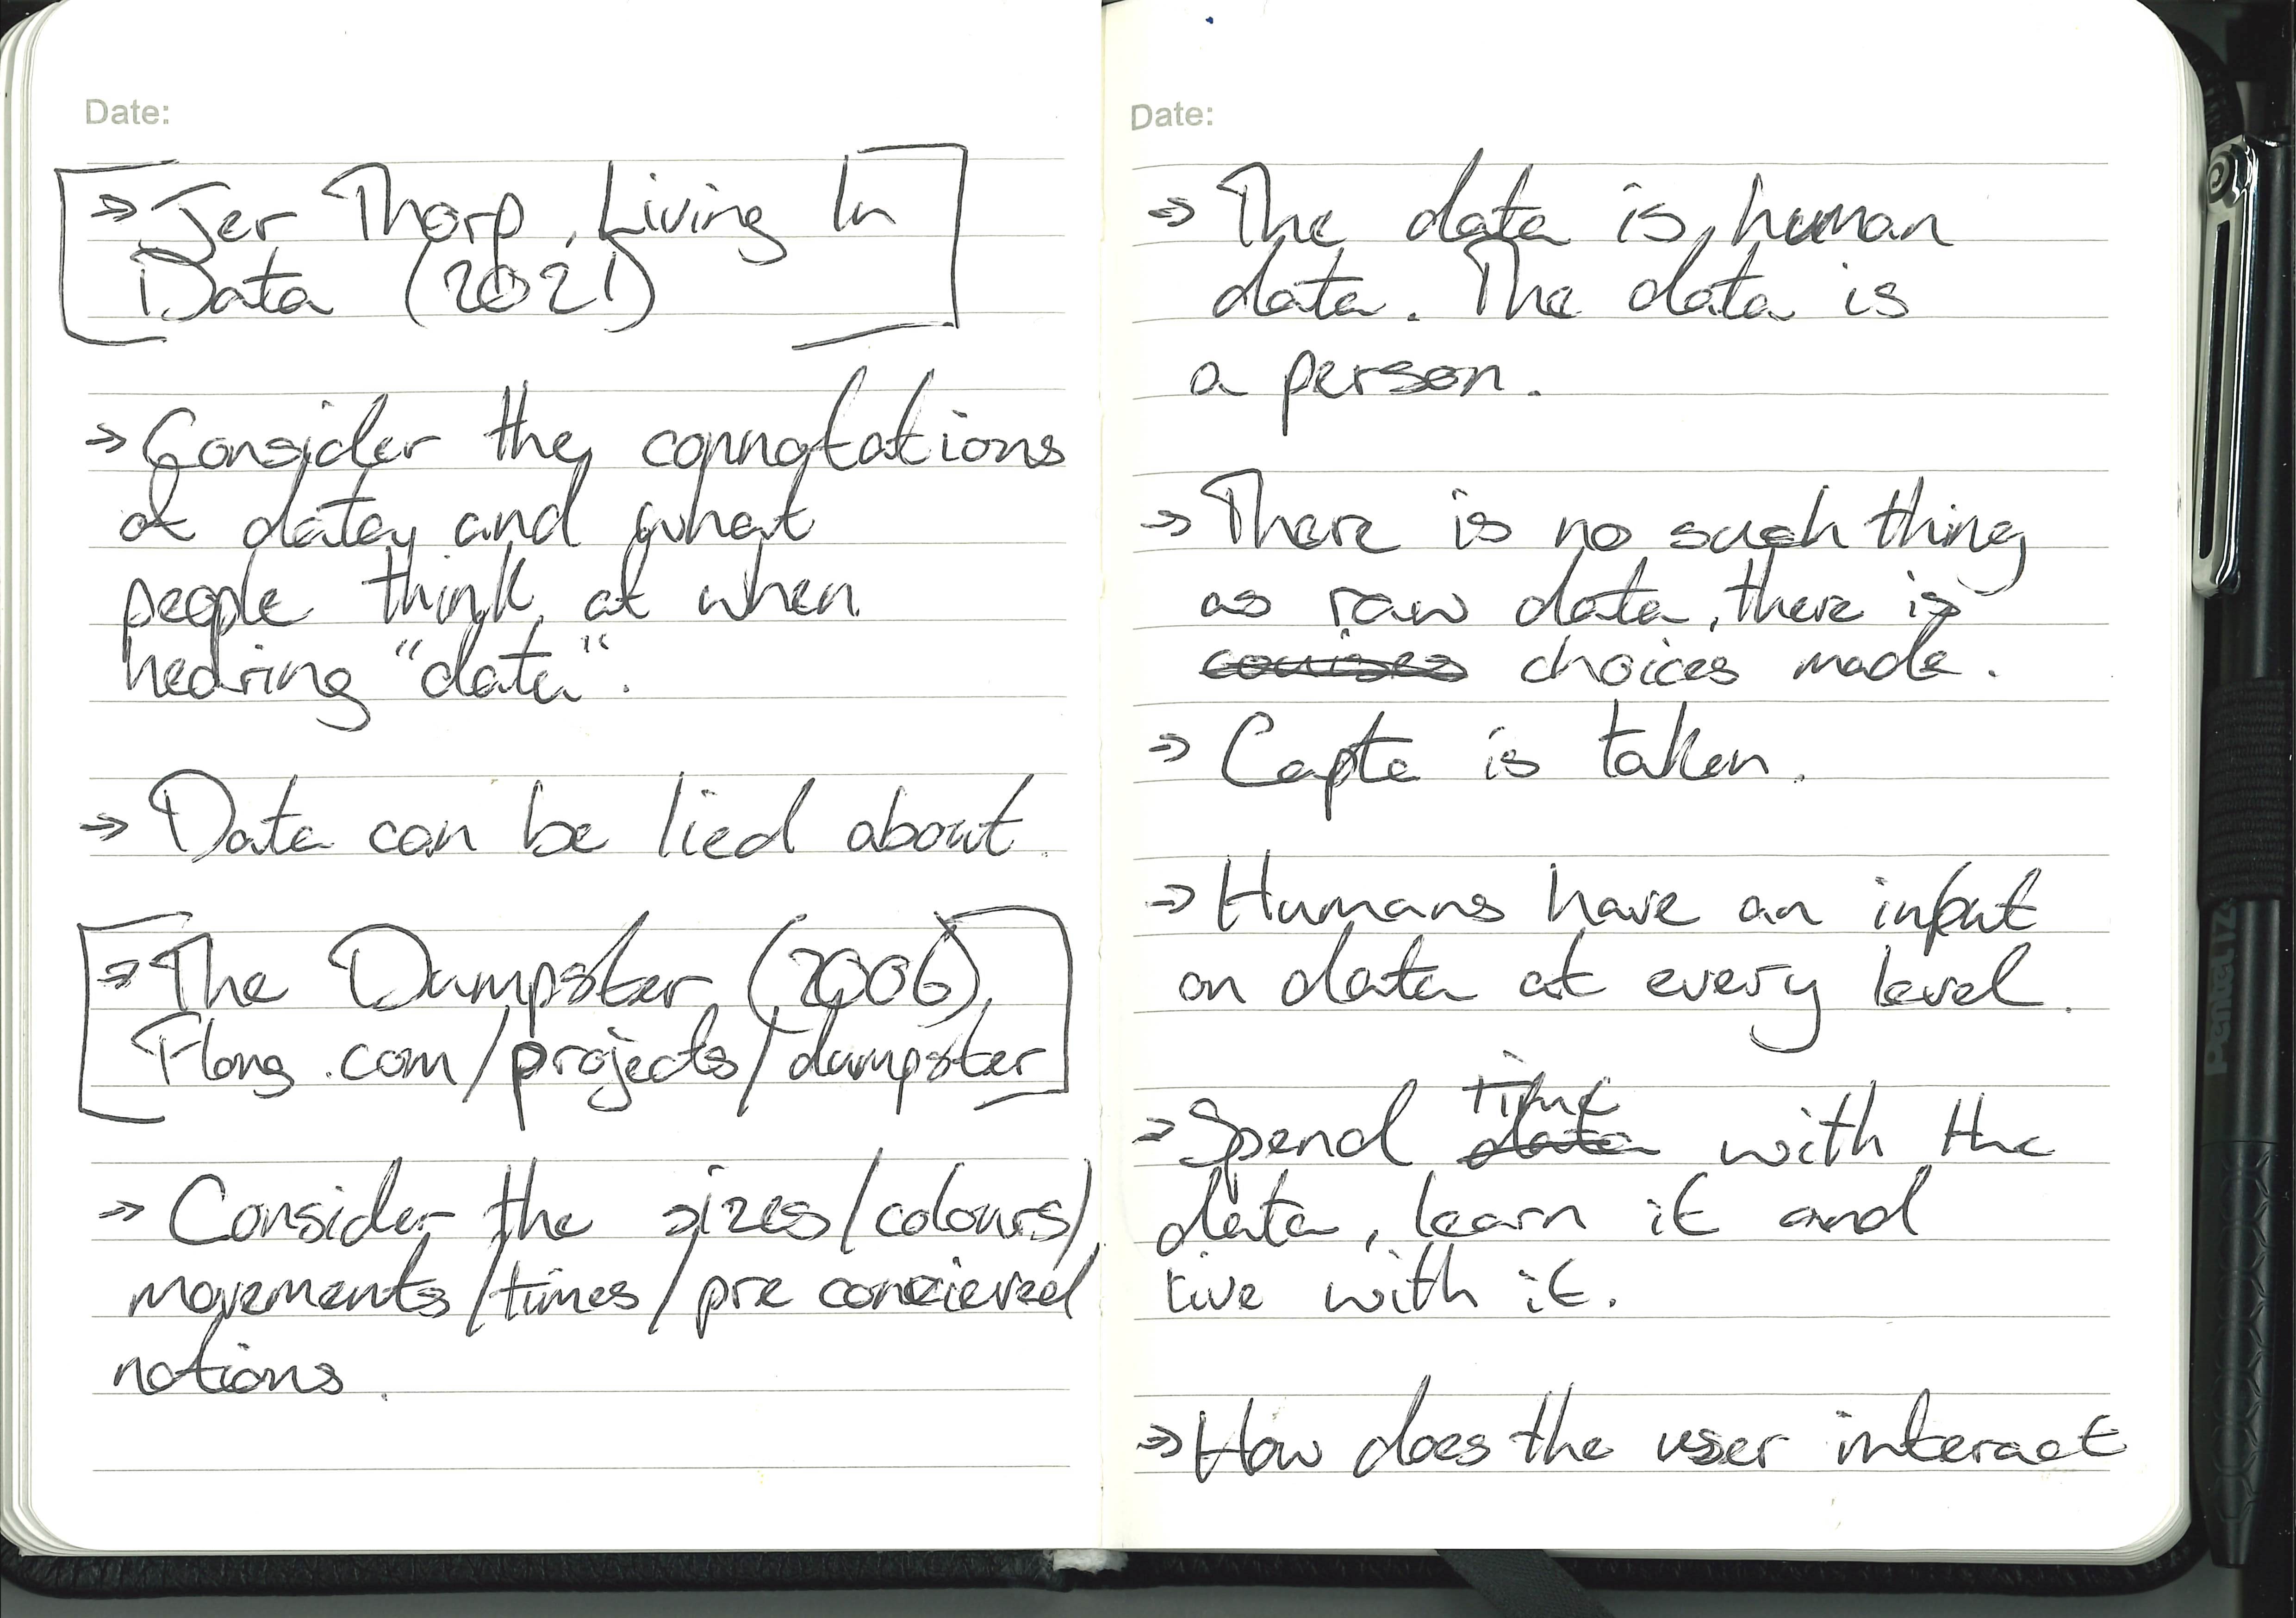 Date:
→ Jer Thorp, Living In
Data (2021)
→ Consider the connotations
of data, and what
people think of when
hearing "data".
→ Data can be lied about.
→ The Dumpster (2006),
Flong.com/projects/dumpster
→ Consider the sizes/colours/
movements/times/pre concieved
notions.
Date:
→ The data is human
data. The data is
a person.
→ There is no such thing
as raw data, there is
~~couises~~ choices made.
→ Capta is taken.
→ Humans have an input
on data at every level.
→ Spend ~~data~~ time with the
data, learn it and
live with it.
→ How does the user interact